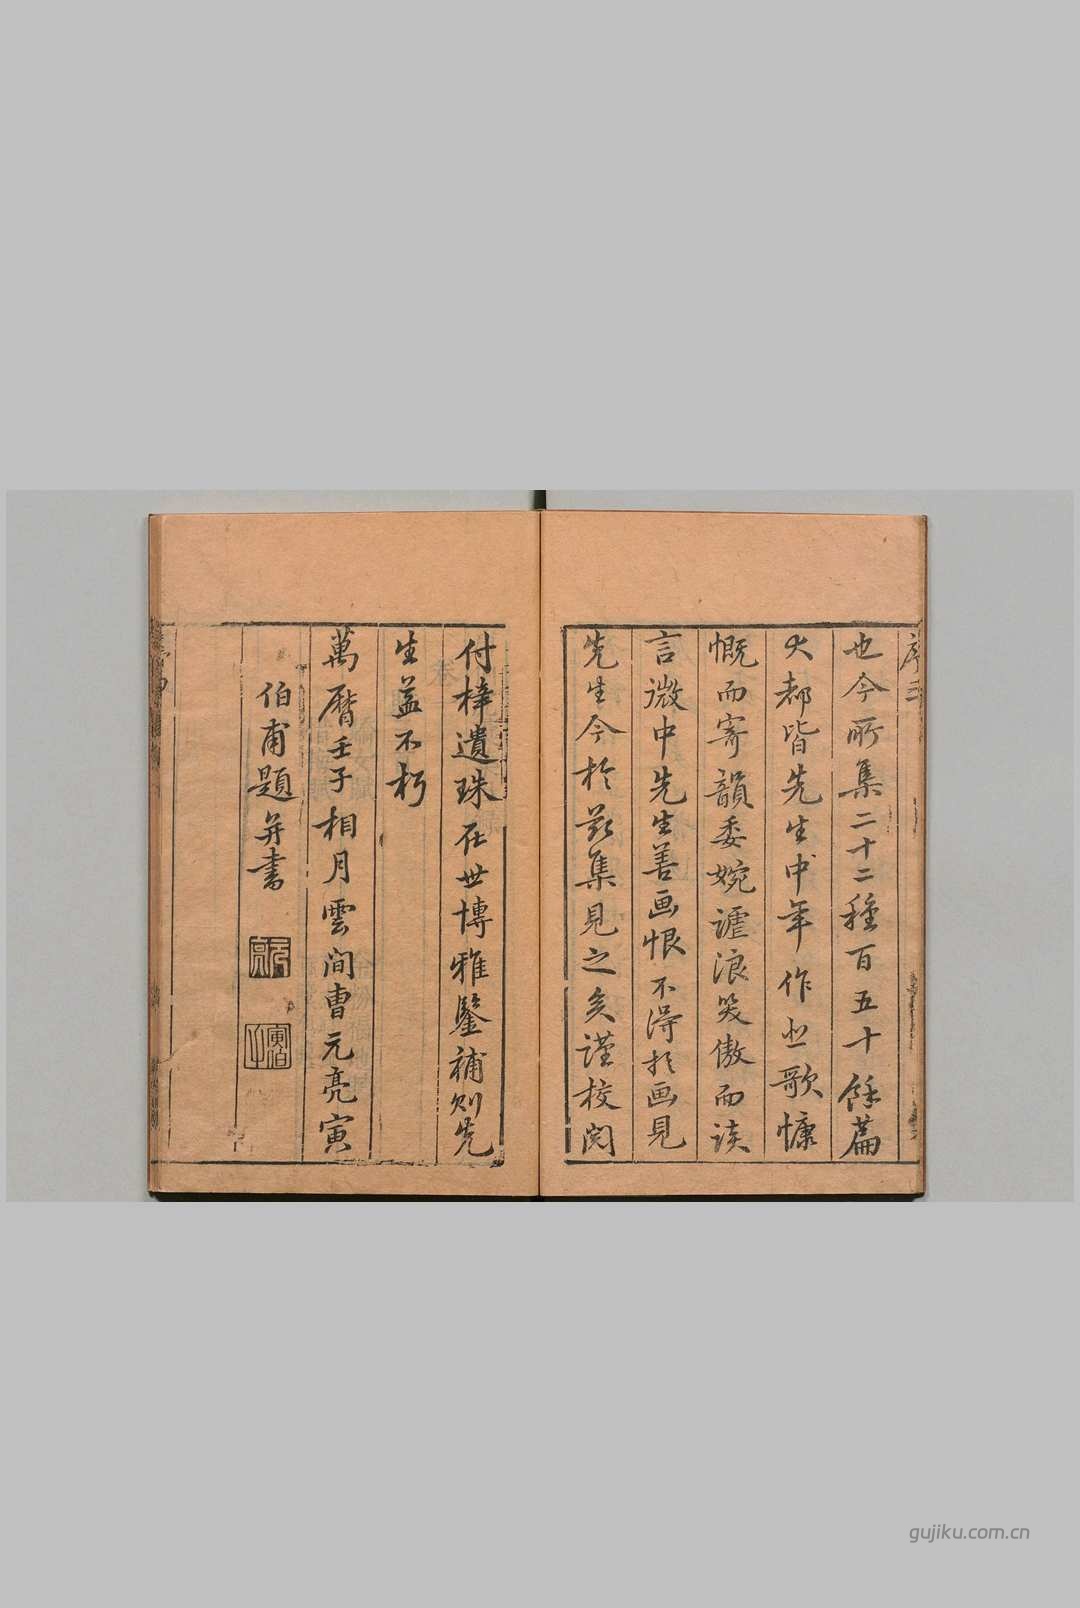 序三
也今所集二十二種百五十餘篇
大都皆先生中年作悲歌慷
慨而寄韻委婉謔浪笑傲而談
言微中先生善画恨不得於画見
先生今於茲集見之矣謹校閱
付梓遺珠在世博雅鑒補則先
生益不朽
萬曆壬子相月雲間曹元亮寅
伯甫題并書
元亮
寅伯
gujiku.com.cn